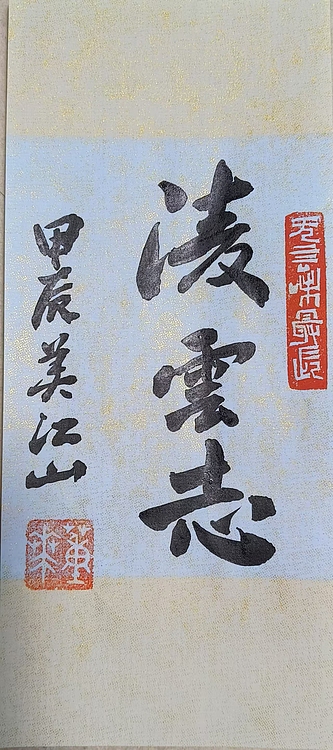 淩雲志
甲辰美江山